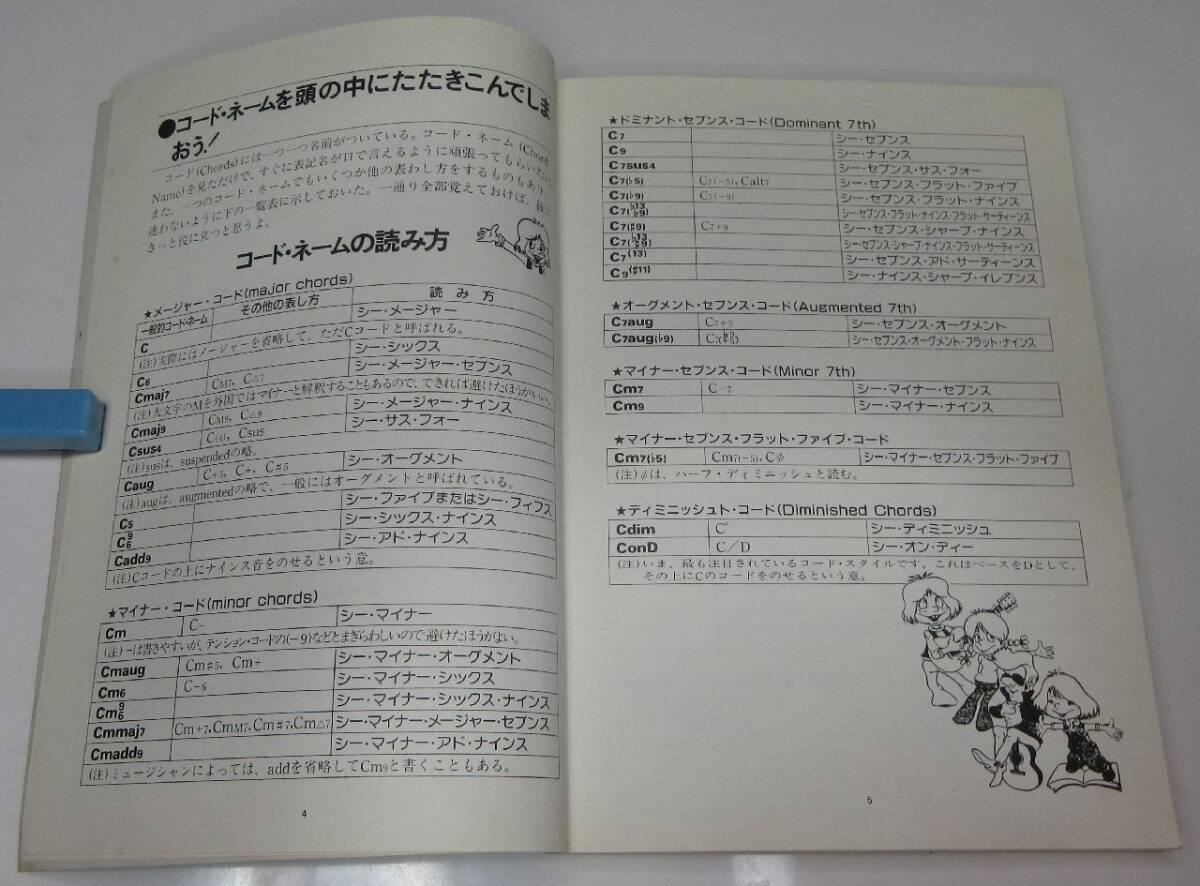 ●コード・ネームを頭の中にたたきこんでしま
おう!
コード(Chords)には一つ一つ名前がついている。コード・ネーム(Chord
Name)を見ただけで、すぐに表記名が口で言えるように頑張ってもらいたい。
また、一つのコード・ネームでもいくつか他の表わし方をするものもあり、
迷わないように下の一覧表に示しておいた。一通り全部覚えておけば、後に
きっと役に立つと思うよ。
コード・ネームの読み方
★メージャー・コード(major chords)
一般的コード・ネーム その他の表し方 読み方
C シー・メージャー
(注)実際にはメージャーを省略して、ただCコードと呼ばれる。
C6 シー・シックス
Cmaj7 CM7, C△7 シー・メージャー・セブンス
(注)大文字のMを外国ではマイナーと解釈することもあるので、できれば避けたほうがいい。
Cmaj9 CM9, C△9 シー・メージャー・ナインス
Csus4 C(4), Csus シー・サス・フォー
(注)susは、suspendedの略。
Caug C+5, C+, C♯5 シー・オーグメント
(注)augは、augmentedの略で、一般にはオーグメントと呼ばれている。
C5 シー・ファイブまたはシー・フィフス
C6 9 シー・シックス・ナインス
Cadd9 シー・アド・ナインス
(注)Cコードの上にナインス音をのせるという意。
★マイナー・コード(minor chords)
Cm C− シー・マイナー
(注)−は書きやすいが、テンション・コードの(−9)などとまぎらわしいので避けたほうがよい。
Cmaug Cm♯5, Cm+ シー・マイナー・オーグメント
Cm6 C−6 シー・マイナー・シックス
Cm6 9 シー・マイナー・シックス・ナインス
Cmmaj7 Cm+7, CmM7, Cm♯7, Cm△7 シー・マイナー・メージャー・セブンス
Cmadd9 シー・マイナー・アド・ナインス
(注)ミュージシャンによっては、addを省略してCm9と書くこともある。
4
★ドミナント・セブンス・コード(Dominant 7th)
C7 シー・セブンス
C9 シー・ナインス
C7sus4 シー・セブンス・サス・フォー
C7(♭5) C7(−5), Calt7 シー・セブンス・フラット・ファイブ
C7(♭9) C7(−9) シー・セブンス・フラット・ナインス
C7(♭13 ♭9) シー・セブンス・フラット・ナインス・フラット・サーティーンス
C7(♯9) C7+9 シー・セブンス・シャープ・ナインス
C7(♭13 ♯9) シー・セブンス・シャープ・ナインス・フラット・サーティーンス
C7(13) シー・セブンス・アド・サーティーンス
C9(♯11) シー・ナインス・シャープ・イレブンス
★オーグメント・セブンス・コード(Augmented 7th)
C7aug C7+5 シー・セブンス・オーグメント
C7aug(♭9) シー・セブンス・オーグメント・フラット・ナインス
★マイナー・セブンス・コード(Minor 7th)
Cm7 C−7 シー・マイナー・セブンス
Cm9 シー・マイナー・ナインス
★マイナー・セブンス・フラット・ファイブ・コード
Cm7(♭5) Cm7(−5), Cφ シー・マイナー・セブンス・フラット・ファイブ
(注)φは、ハーフ・ディミニッシュと読む。
★ディミニッシュト・コード(Diminished Chords)
Cdim C° シー・ディミニッシュ
ConD C/D シー・オン・ディー
(注)いま、最も注目されているコード・スタイルです。これはベースをDとして、
その上にCのコードをのせるという意。
5